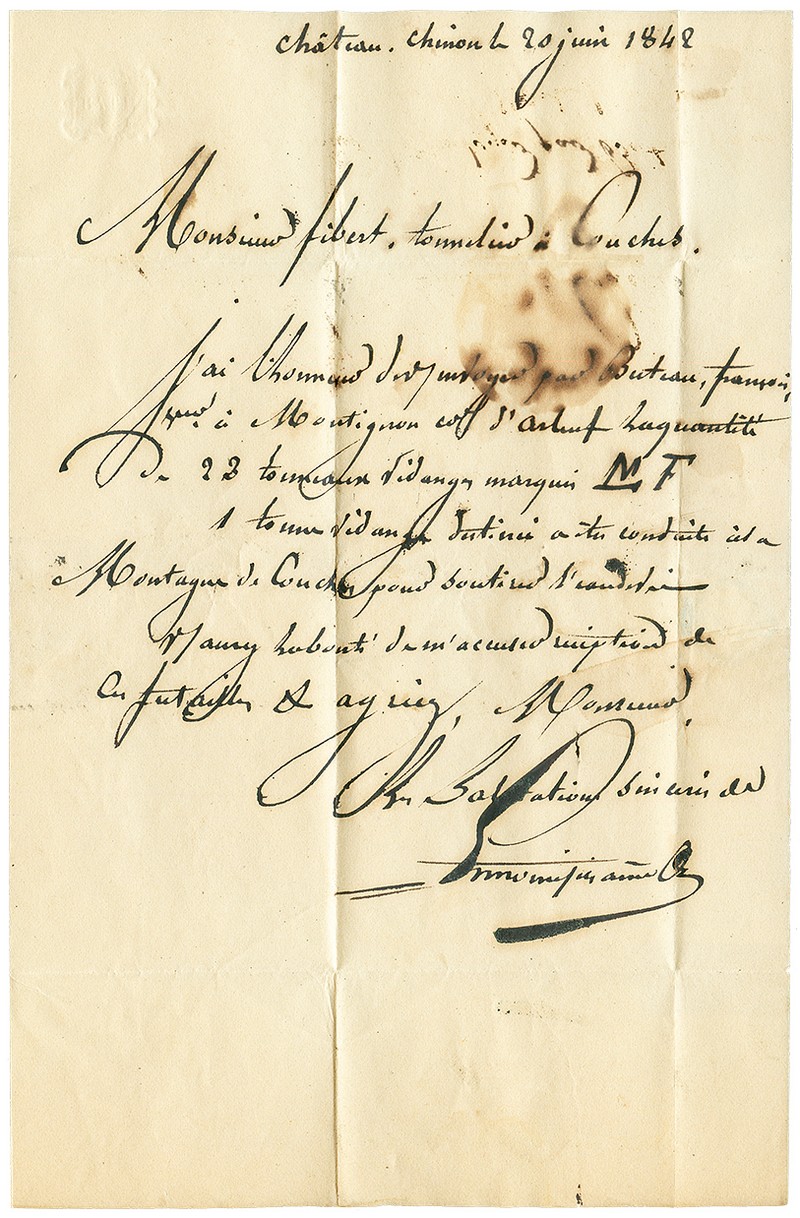 château. chinon le 20 juin 1842
Monsieur fibert, tonnelier à Couches.
J'ai l'honneur de vs envoyer par Buteau, françois,
à Montignon d'arleuf la quantité
de 23 tonneaux vidanges marqués M F
1 tonne vidange destinée a être conduite à la
Montagne de Couches pour soutirer l'eau de vie
Vs aurez la bonté de m'accuser réception de
ces futailles & agriez, Monsieur,
les Salutations sincères de